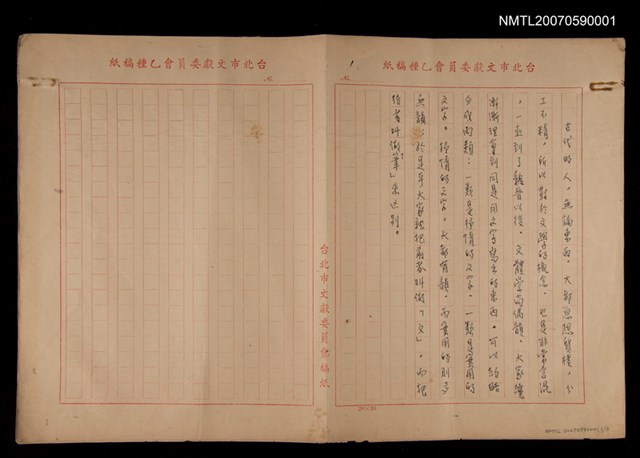 NMTL20070590001
台北市文獻委員會乙種稿紙
1
古代的人，無論東西，大都思想質樸，分
工不精，所以對於文學的概念，也是非常含混
。一直到了魏晉以後，文體崇尚偶韻，大家纔
漸漸理會到同是用文字寫出的東西，可以約略
分成兩類：一類是抒情的文字，一類是實用的
文字。抒情的文字，大都有韻，而實用的則多
無韻；於是乎大家就把前者叫做「文」，而把
後者叫做「筆」來區別。
台北市文獻委員會稿紙
台北市文獻委員會乙種稿紙
20×20